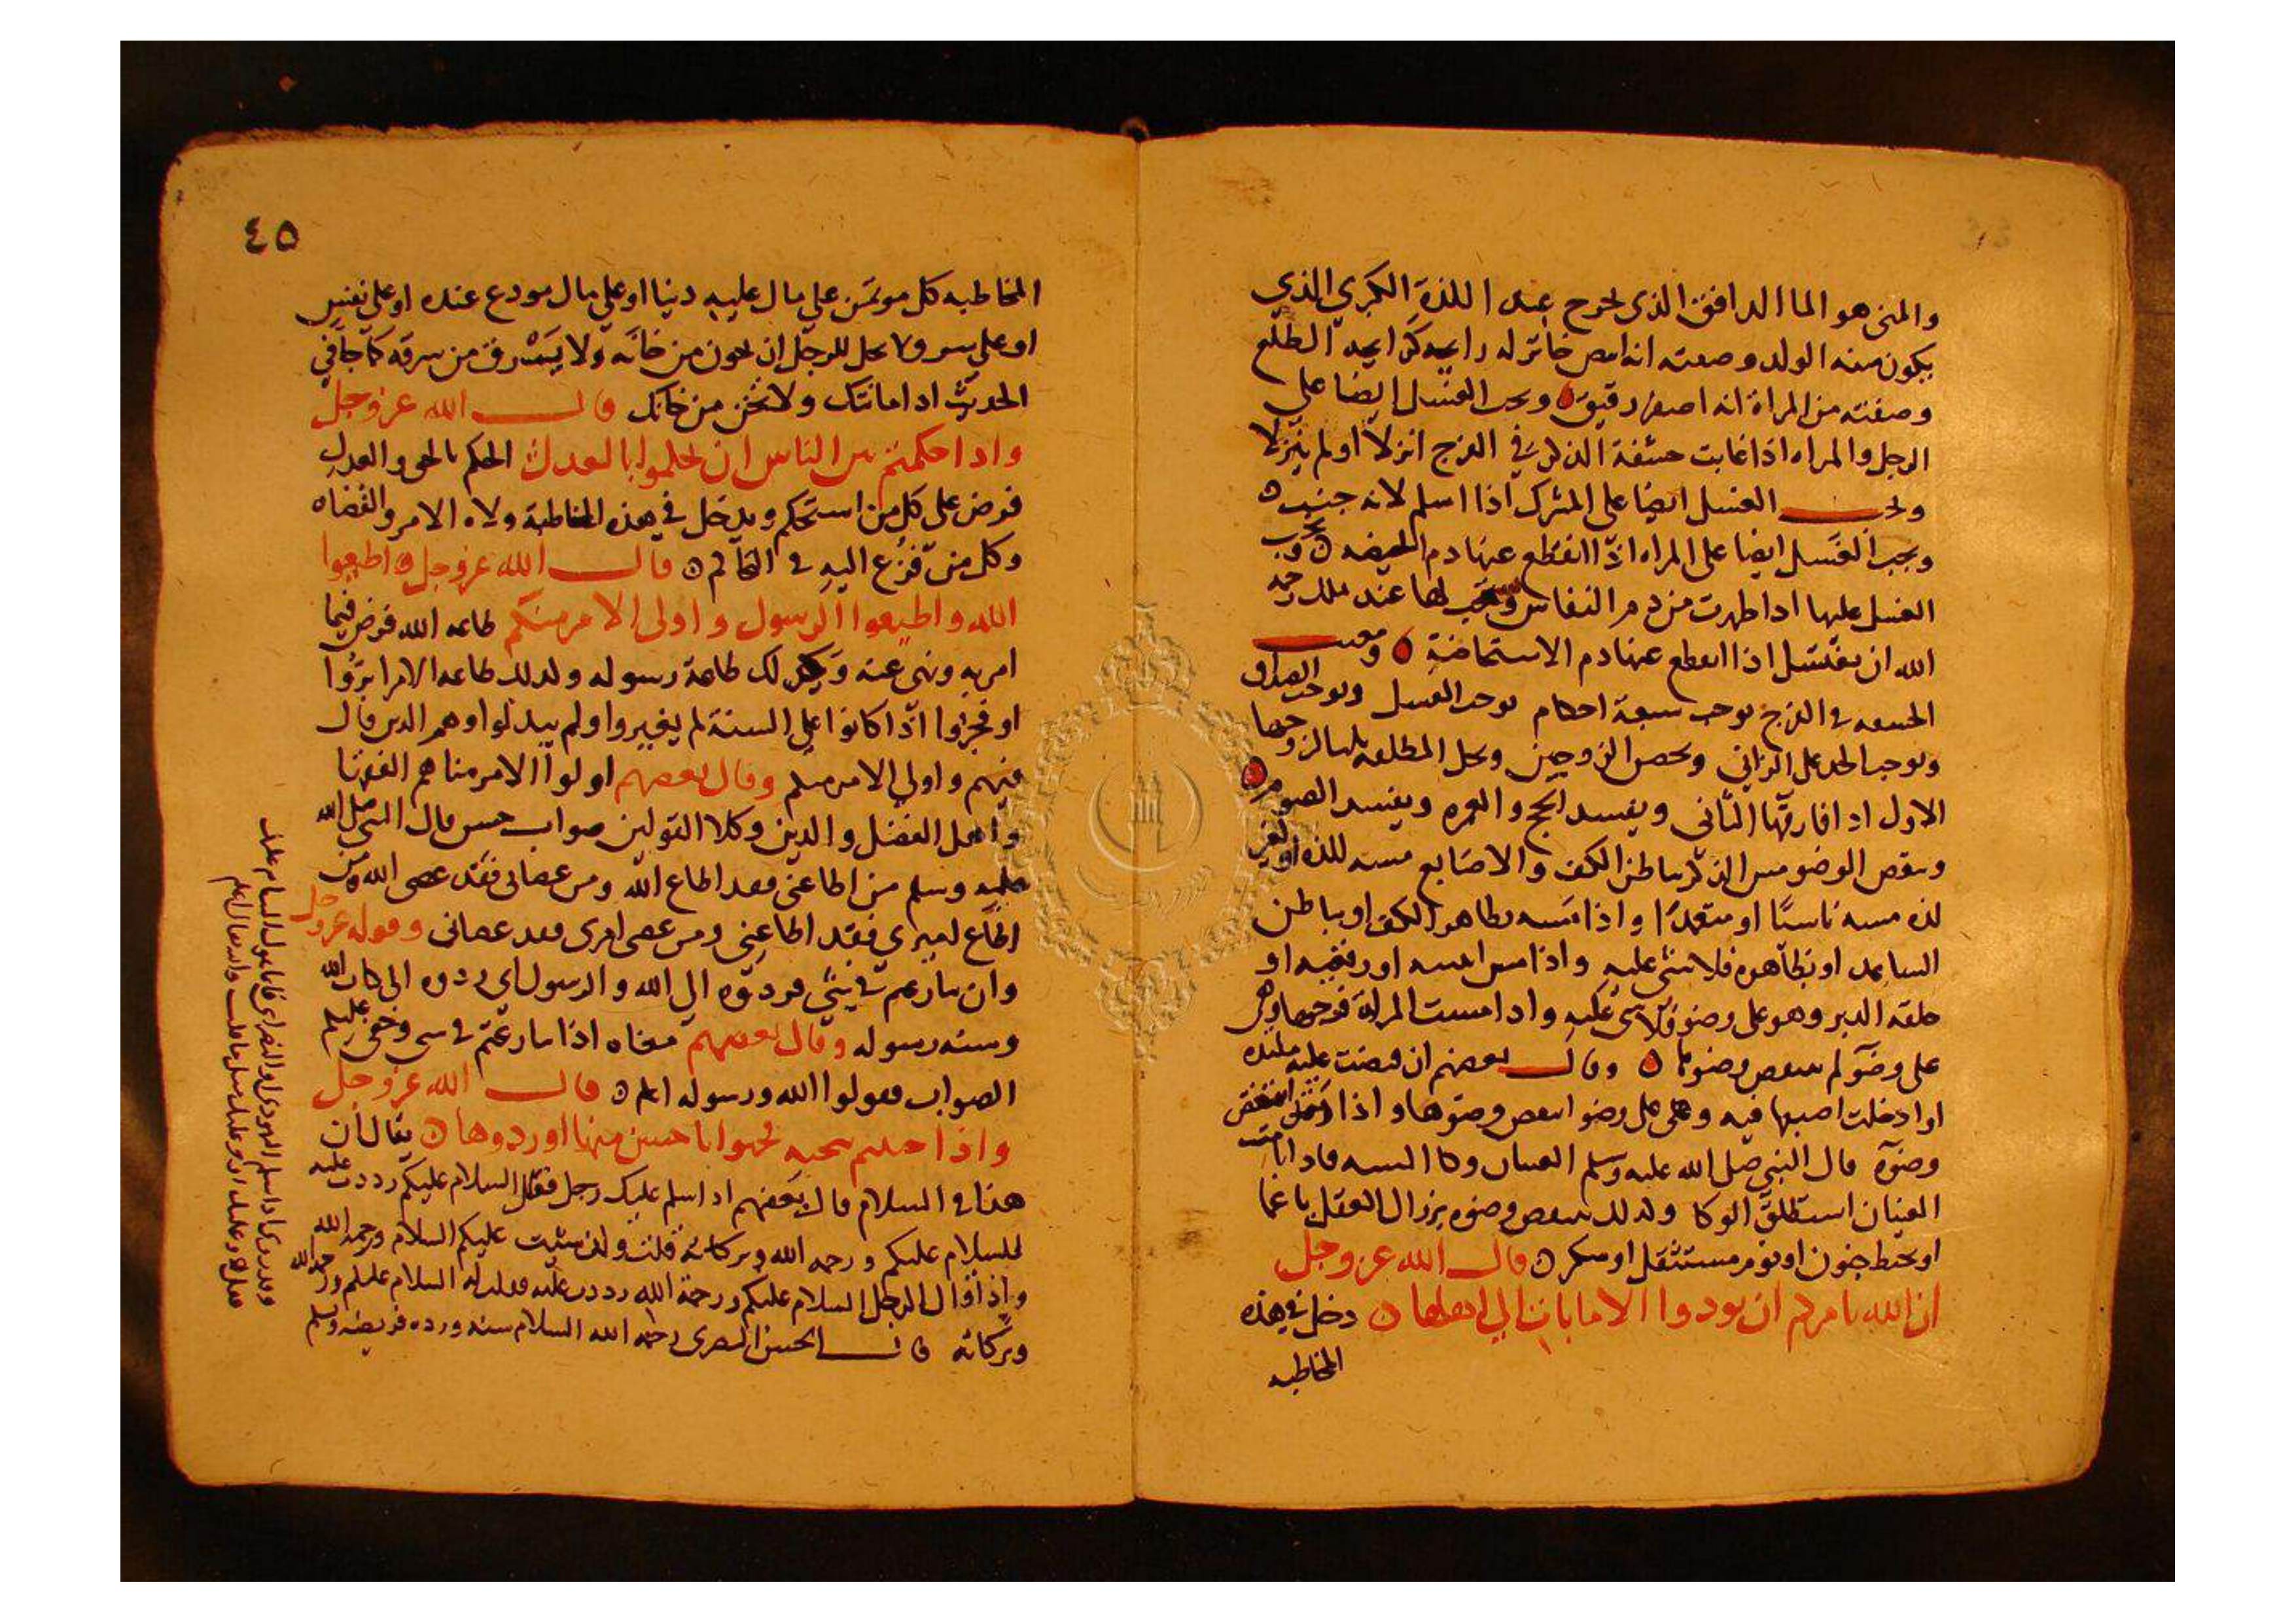 والمني هو الما الدافق الذي يخرج عند اللذة الكبري الذي
يكون منه الولد وصفته انه ابيض خاثر له رايحه كرايحه الطلع
وصفته من المراة انه اصفر رقيق ويجب الغسل ايضا على
الرجل والمراه اذا غابت حشفة الذكر في الفرج انزلا او لم ينزلا
ويجب الغسل ايضا على المشرك اذا اسلم لانه جنب
ويجب الغسل ايضا على المراه اذا انقطع عنها دم الحيضه ويجب
الغسل عليها اذا طهرت من دم النفاس ويستحب لها عند ملك رحمه
الله ان تغتسل اذا انقطع عنها دم الاستحاضة ومغيب
الحشفه في الفرج يوجب سبعة احكام يوجب الغسل ويوجب الصداق
ويوجب الحد على الزاني ويحصن الزوجين ويحل المطلقه ثلثا لزوجها
الاول اذا فارقها الثاني ويفسد الحج والعمره ويفسد الصوم
وينقض الوضو مس الذكر بباطن الكف والاصابع مسه للذه او لغير
لذه مسه ناسيا او متعمدا واذا مسه بظاهر الكف او بباطن
الساعد او بظاهره فلا شي عليه واذا مس انثييه او رفغيه او
حلقه الدبر وهو على وضو فلا شي عليه واذا مست المراة فرجها وهي
على وضو لم ينتقض وضوها وقال بعضهم ان قبضت عليه
او ادخلت اصبعها فيه وهي على وضو انتقض وضوها واذا انتقض
وضوه قال النبي صلى الله عليه وسلم العينان وكا السه فاذا نامت
العينان استطلق الوكا وكذلك ينتقض وضوه بزوال العقل باغما
او تخبط جنون او نوم مستثقل او سكر قال الله عز وجل
ان الله يامركم ان تودوا الامانات الي اهلها دخل في هذه
المخاطبه
٤٥
المخاطبه كل موتمن على مال عليه دينا او على مال مودع عنده او على نفس
او على سر ولا يحل للرجل ان يخون من خانه ولا يسرق من سرقه كما جا في
الحديث اد امانتك ولا تخن من خانك قال الله عز وجل
واذا حكمتم بين الناس ان تحكموا بالعدل الحكم بالحق والعدل
فرض على كل من استحكم ويدخل في هذه المخاطبة ولاه الامر والقضاه
وكل من فزع اليه في التحاكم قال الله عز وجل اطيعوا
الله واطيعوا الرسول واولى الامر منكم طاعه الله فرض فيما
امر به ونهى عنه وكذلك طاعة رسوله وكذلك طاعه الامرا بروا
او فجروا اذا كانوا على السنة لم يغيروا ولم يبدلوا وهم الذين قال
فيهم واولي الامر منكم وقال بعضهم اولوا الامر منا هم الفقها
واهل الفضل والدين وكلا القولين صواب حسن قال النبي صلى الله
عليه وسلم من اطاعني فقد اطاع الله ومن عصاني فقد عصى الله ومن
اطاع اميري فقد اطاعني ومن عصى اميري فقد عصاني وقوله عز وجل
وان تنازعتم في شي فردوه الى الله والرسول اي ردوه الى كتاب الله
وسنه رسوله وقال بعضهم معناه اذا تنازعتم في شي وخفي عليكم
الصواب فقولوا الله ورسوله اعلم قال الله عز وجل
واذا حييتم بتحيه فحيوا باحسن منها او ردوها يقال ان
هذا في السلام قال بعضهم اذا سلم عليك رجل فقال السلام عليكم رددت عليه
السلام عليكم ورحمه الله وبركاته قلت ولان شيت عليكم السلام ورحمه الله
واذا قال الرجل السلام عليكم ورحمة الله رددت عليه فقلت له السلام عليكم ورحمه الله
وبركاته قال الحسن البصري رحمه الله السلام سنه ورده فريضه